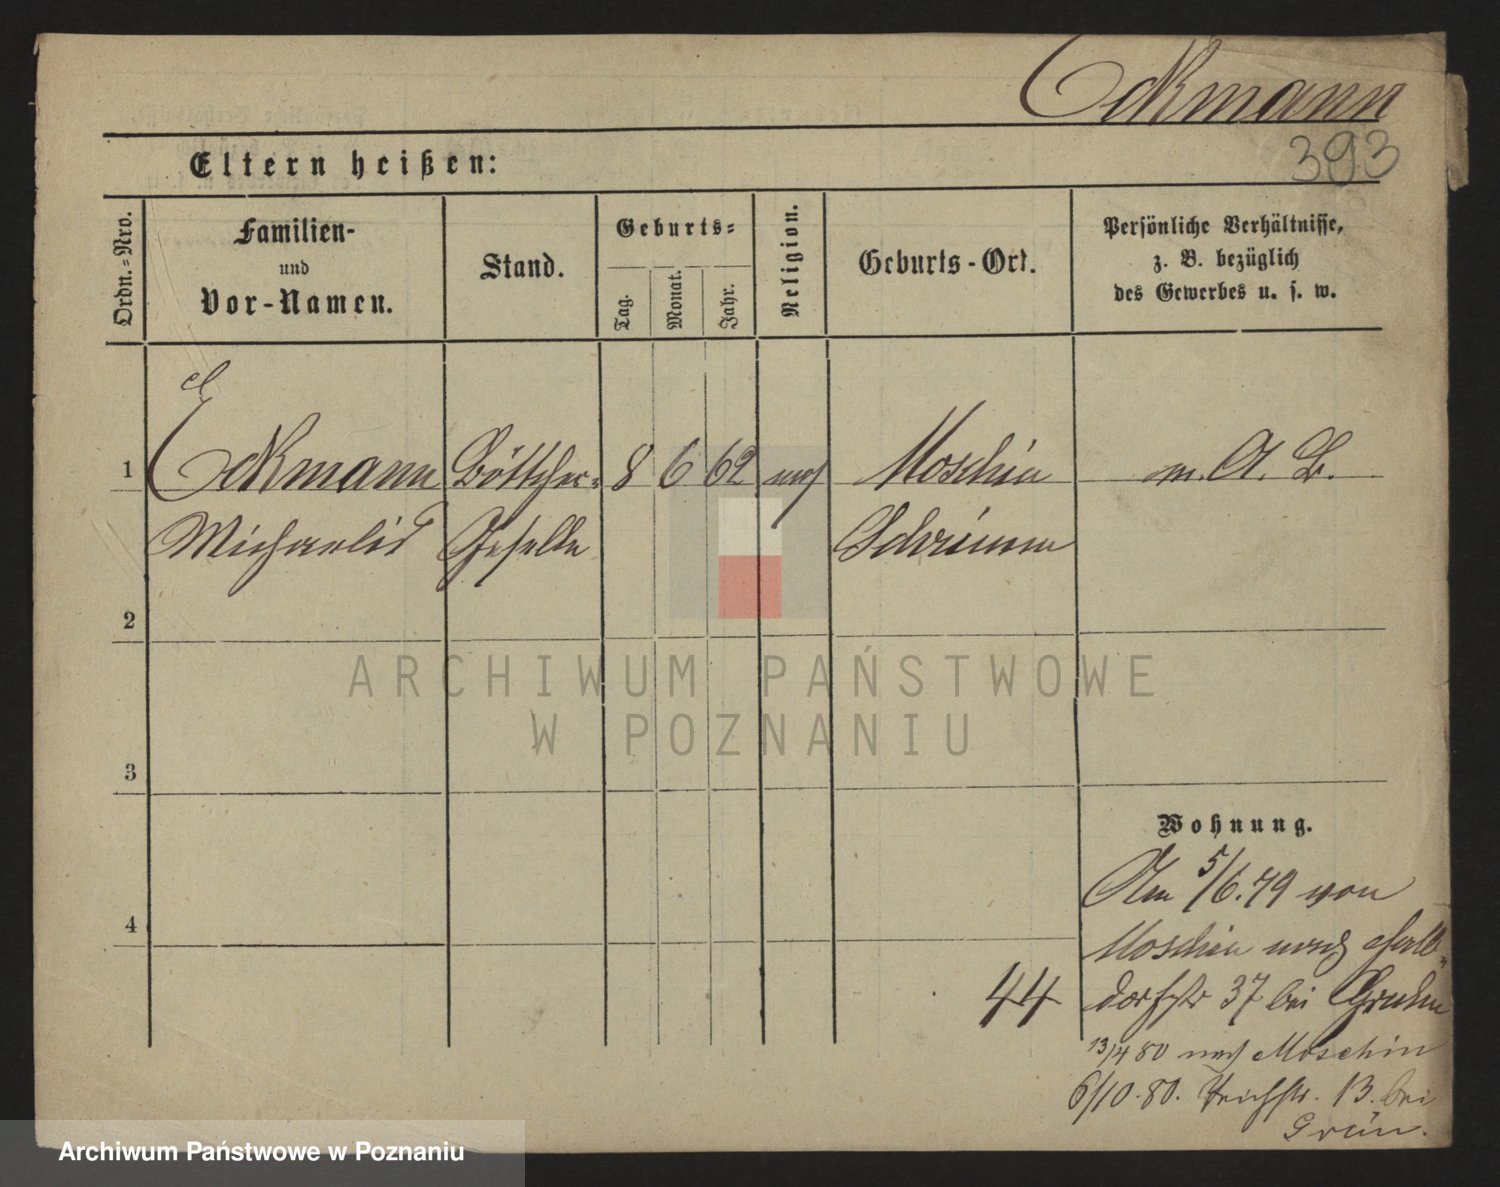 Eckmann
393
Eltern heißen:
Ordn.-Nro.
Familien-
und
Vor-Namen.
Stand.
Geburts-
Tag.
Monat.
Jahr.
Religion.
Geburts-Ort.
Persönliche Verhältnisse,
z. B. bezüglich
des Gewerbes u. s. w.
1 Eckmann Böttcher- 8 6 62 Moschin m. A. B.
Michaelis Geselle Schrimm
2
3
4
ARCHIWUM PAŃSTWOWE
W POZNANIU
Wohnung.
Am 5/6.79 von
Moschin nach Hall-
dorfstr 37 bei
44
13/4 80 nach Moschin
6/10.80. 13. bei
Grün.
Archiwum Państwowe w Poznaniu